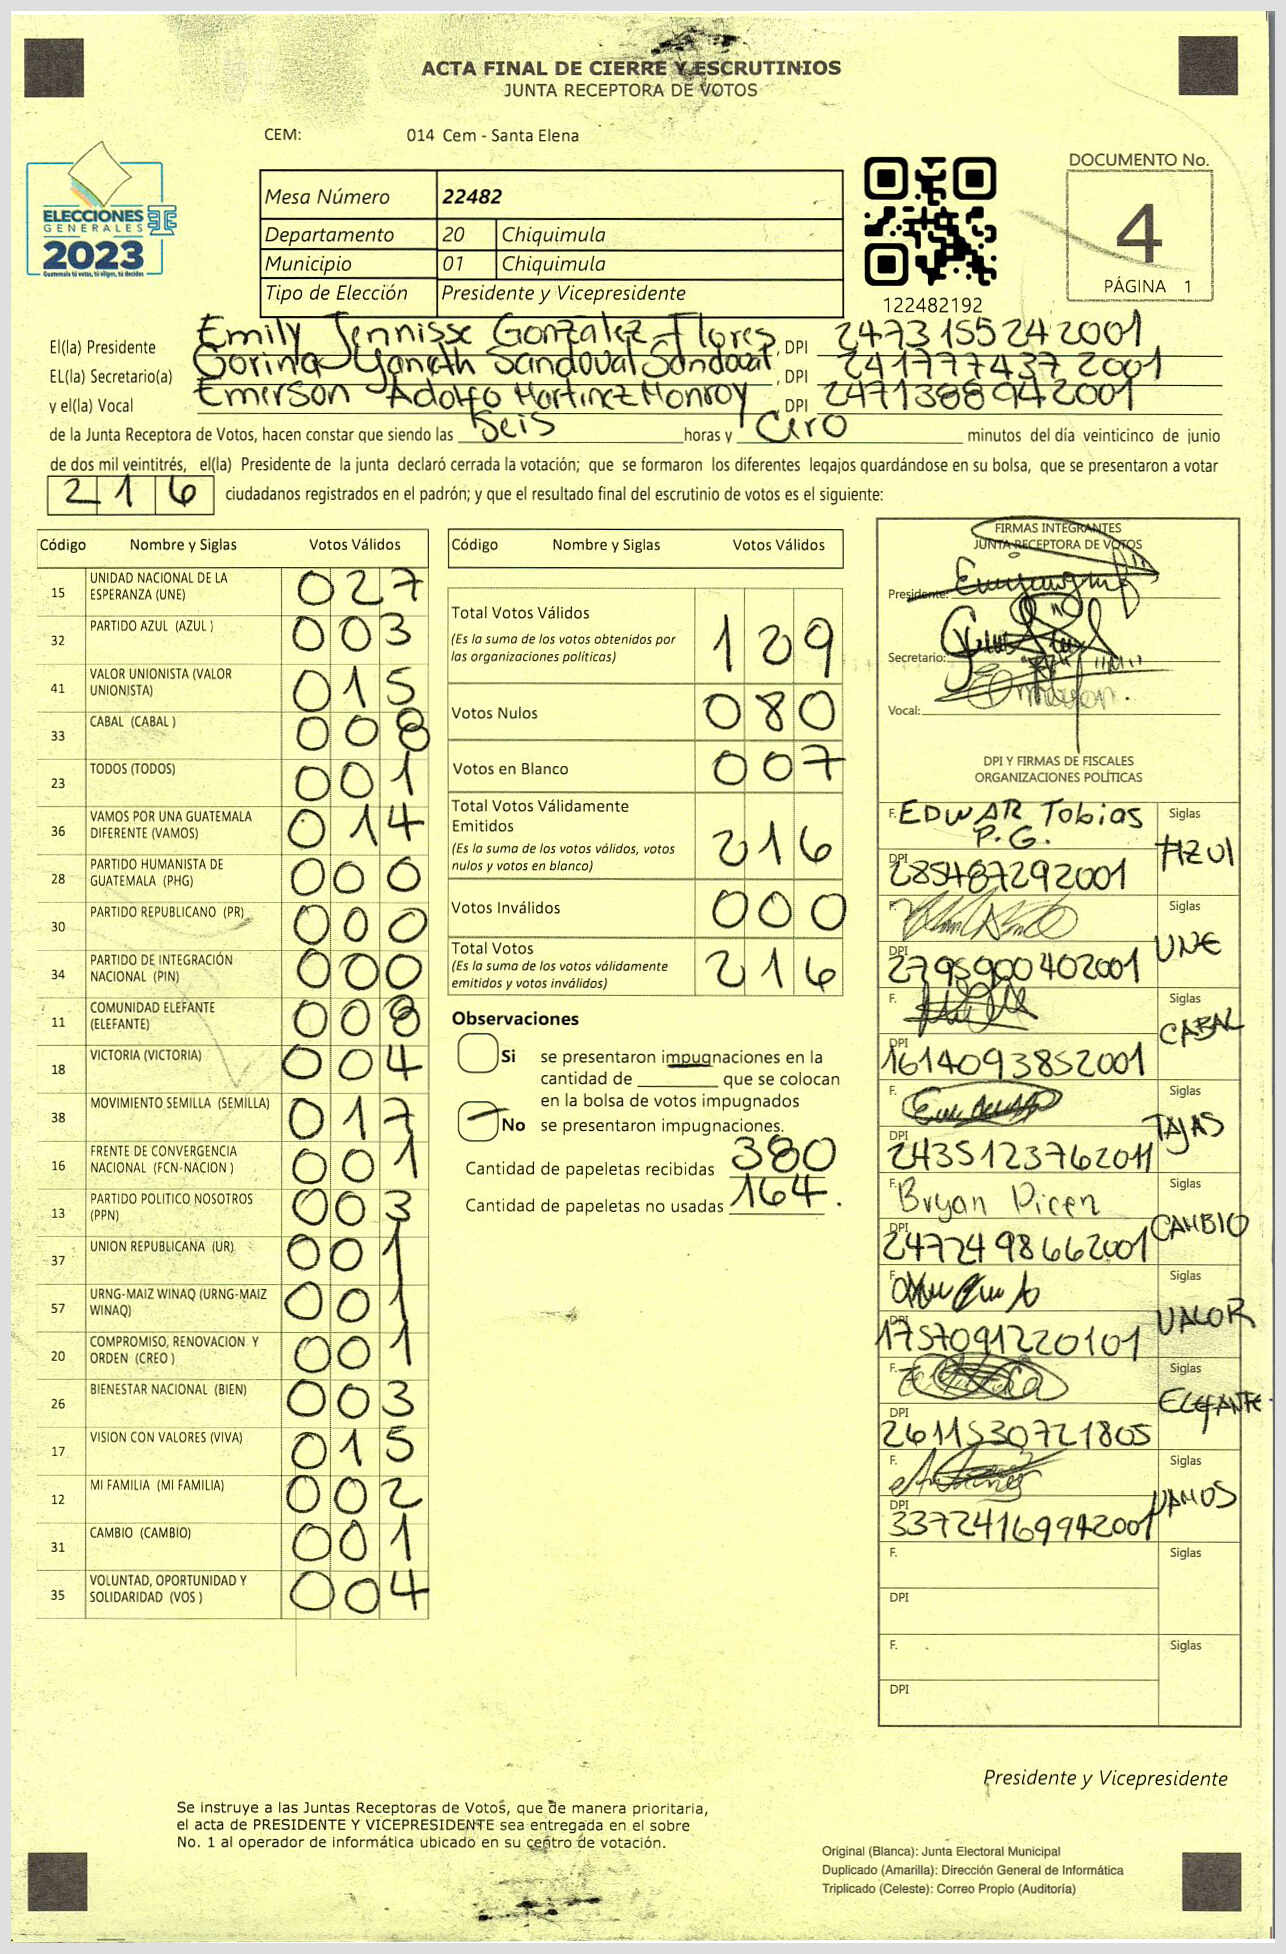 ACTA FINAL DE CIERRE Y ESCRUTINIOS
JUNTA RECEPTORA DE VOTOS
CEM: 014 Cem - Santa Elena
ELECCIONES
GENERALES
2023
Guatemala tú votas, tú eliges, tú decides
Mesa Número 22482
Departamento 20 Chiquimula
Municipio 01 Chiquimula
Tipo de Elección Presidente y Vicepresidente
122482192
DOCUMENTO No.
4
PÁGINA 1
El(la) Presidente Emily Jennisse Gonzalez Flores, DPI 2473155242001
EL(la) Secretario(a) Gorina Yaneth Sandoval Sandoval, DPI 2417774372001
y el(la) Vocal Emerson Adolfo Martinez Monroy DPI 2471388942001
de la Junta Receptora de Votos, hacen constar que siendo las Seis horas y Cero minutos del día veinticinco de junio
de dos mil veintitrés, el(la) Presidente de la junta declaró cerrada la votación; que se formaron los diferentes legajos guardándose en su bolsa, que se presentaron a votar
216 ciudadanos registrados en el padrón; y que el resultado final del escrutinio de votos es el siguiente:
Código Nombre y Siglas Votos Válidos
15 UNIDAD NACIONAL DE LA ESPERANZA (UNE) 027
32 PARTIDO AZUL (AZUL ) 003
41 VALOR UNIONISTA (VALOR UNIONISTA) 015
33 CABAL (CABAL ) 008
23 TODOS (TODOS) 001
36 VAMOS POR UNA GUATEMALA DIFERENTE (VAMOS) 014
28 PARTIDO HUMANISTA DE GUATEMALA (PHG) 000
30 PARTIDO REPUBLICANO (PR) 000
34 PARTIDO DE INTEGRACIÓN NACIONAL (PIN) 000
11 COMUNIDAD ELEFANTE (ELEFANTE) 008
18 VICTORIA (VICTORIA) 004
38 MOVIMIENTO SEMILLA (SEMILLA) 017
16 FRENTE DE CONVERGENCIA NACIONAL (FCN-NACION ) 001
13 PARTIDO POLITICO NOSOTROS (PPN) 003
37 UNION REPUBLICANA (UR) 001
57 URNG-MAIZ WINAQ (URNG-MAIZ WINAQ) 001
20 COMPROMISO, RENOVACION Y ORDEN (CREO ) 001
26 BIENESTAR NACIONAL (BIEN) 003
17 VISION CON VALORES (VIVA) 015
12 MI FAMILIA (MI FAMILIA) 002
31 CAMBIO (CAMBIO) 001
35 VOLUNTAD, OPORTUNIDAD Y SOLIDARIDAD (VOS ) 004
Código Nombre y Siglas Votos Válidos
Total Votos Válidos 129
(Es la suma de los votos obtenidos por
las organizaciones politicas)
Votos Nulos 080
Votos en Blanco 007
Total Votos Válidamente
Emitidos 216
(Es la suma de los votos válidos, votos
nulos y votos en blanco)
Votos Inválidos 000
Total Votos 216
(Es la suma de los votos válidamente
emitidos y votos inválidos)
Observaciones
Si se presentaron impugnaciones en la
cantidad de ________ que se colocan
en la bolsa de votos impugnados
No se presentaron impugnaciones.
Cantidad de papeletas recibidas 380
Cantidad de papeletas no usadas 164.
FIRMAS INTEGRANTES
JUNTA RECEPTORA DE VOTOS
Presidente:
Secretario:
Vocal:
DPI Y FIRMAS DE FISCALES
ORGANIZACIONES POLÍTICAS
F. EDWAR Tobias P.G. Siglas AZUl
DPI 285487292001
F. Siglas UNE
DPI 2795900402001
F. Siglas CABAL
DPI 1614093852001
F. Siglas TAJAS
DPI 2435123762011
F. Bryan Dicen Siglas CAMBIO
DPI 2472498662001
F. Siglas VALOR
DPI 1757091220101
F. Siglas ELEFANTE
DPI 2611530721805
F. Siglas VAMOS
DPI 33724169942001
F. Siglas
DPI
F. Siglas
DPI
Presidente y Vicepresidente
Se instruye a las Juntas Receptoras de Votos, que de manera prioritaria,
el acta de PRESIDENTE Y VICEPRESIDENTE sea entregada en el sobre
No. 1 al operador de informática ubicado en su centro de votación.
Original (Blanca): Junta Electoral Municipal
Duplicado (Amarilla): Dirección General de Informática
Triplicado (Celeste): Correo Propio (Auditoría)